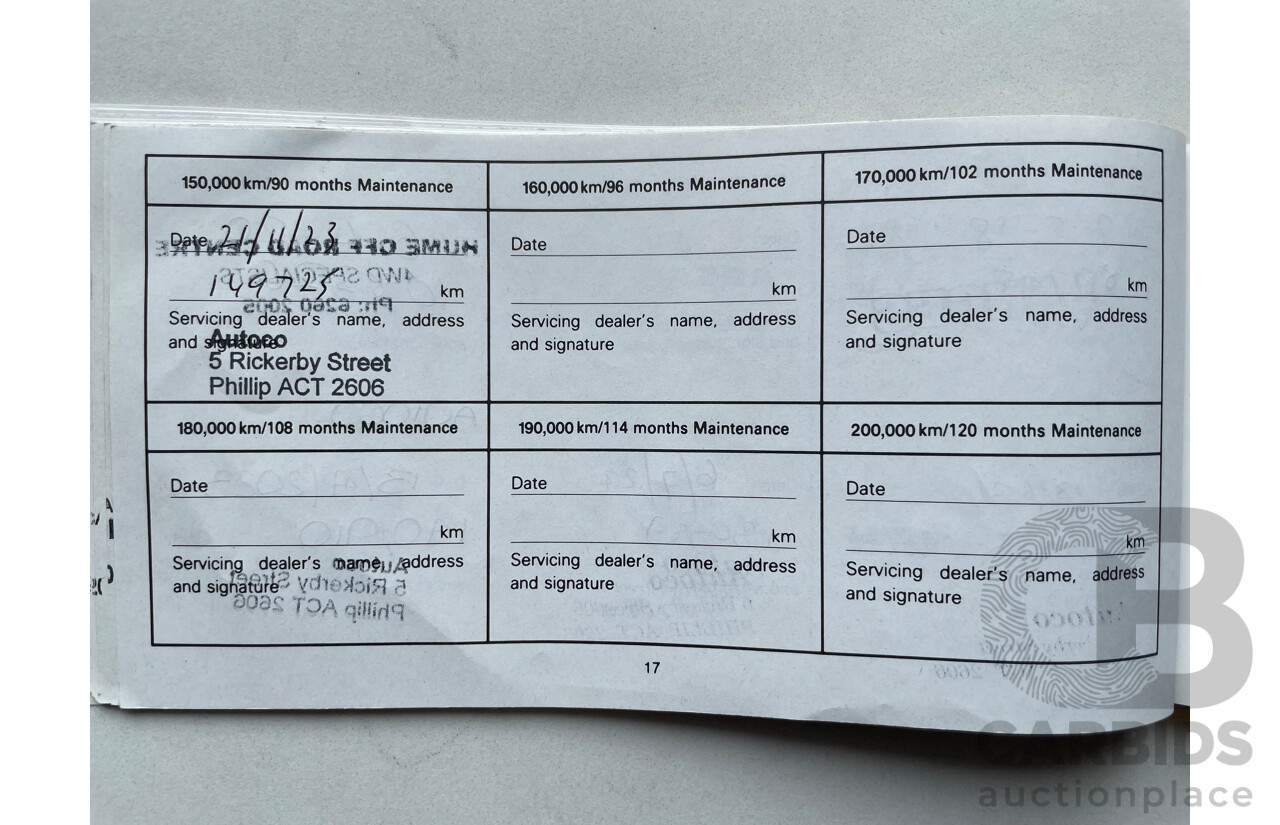 150,000 km/90 months Maintenance
160,000 km/96 months Maintenance
170,000 km/102 months Maintenance
Date 21/11/23
149725 km
Servicing dealer's name, address
and signature
Autoco
5 Rickerby Street
Phillip ACT 2606
Date
km
Servicing dealer's name, address
and signature
Date
km
Servicing dealer's name, address
and signature
180,000 km/108 months Maintenance
190,000 km/114 months Maintenance
200,000 km/120 months Maintenance
Date
km
Servicing dealer's name, address
and signature
Date
km
Servicing dealer's name, address
and signature
Date
km
Servicing dealer's name, address
and signature
HUME OFF ROAD CENTRE
4WD SPECIALISTS
PH: 6260 2005
Autoco
5 Rickerby Street
Phillip ACT 2606
17
CARBIDS
auctionplace